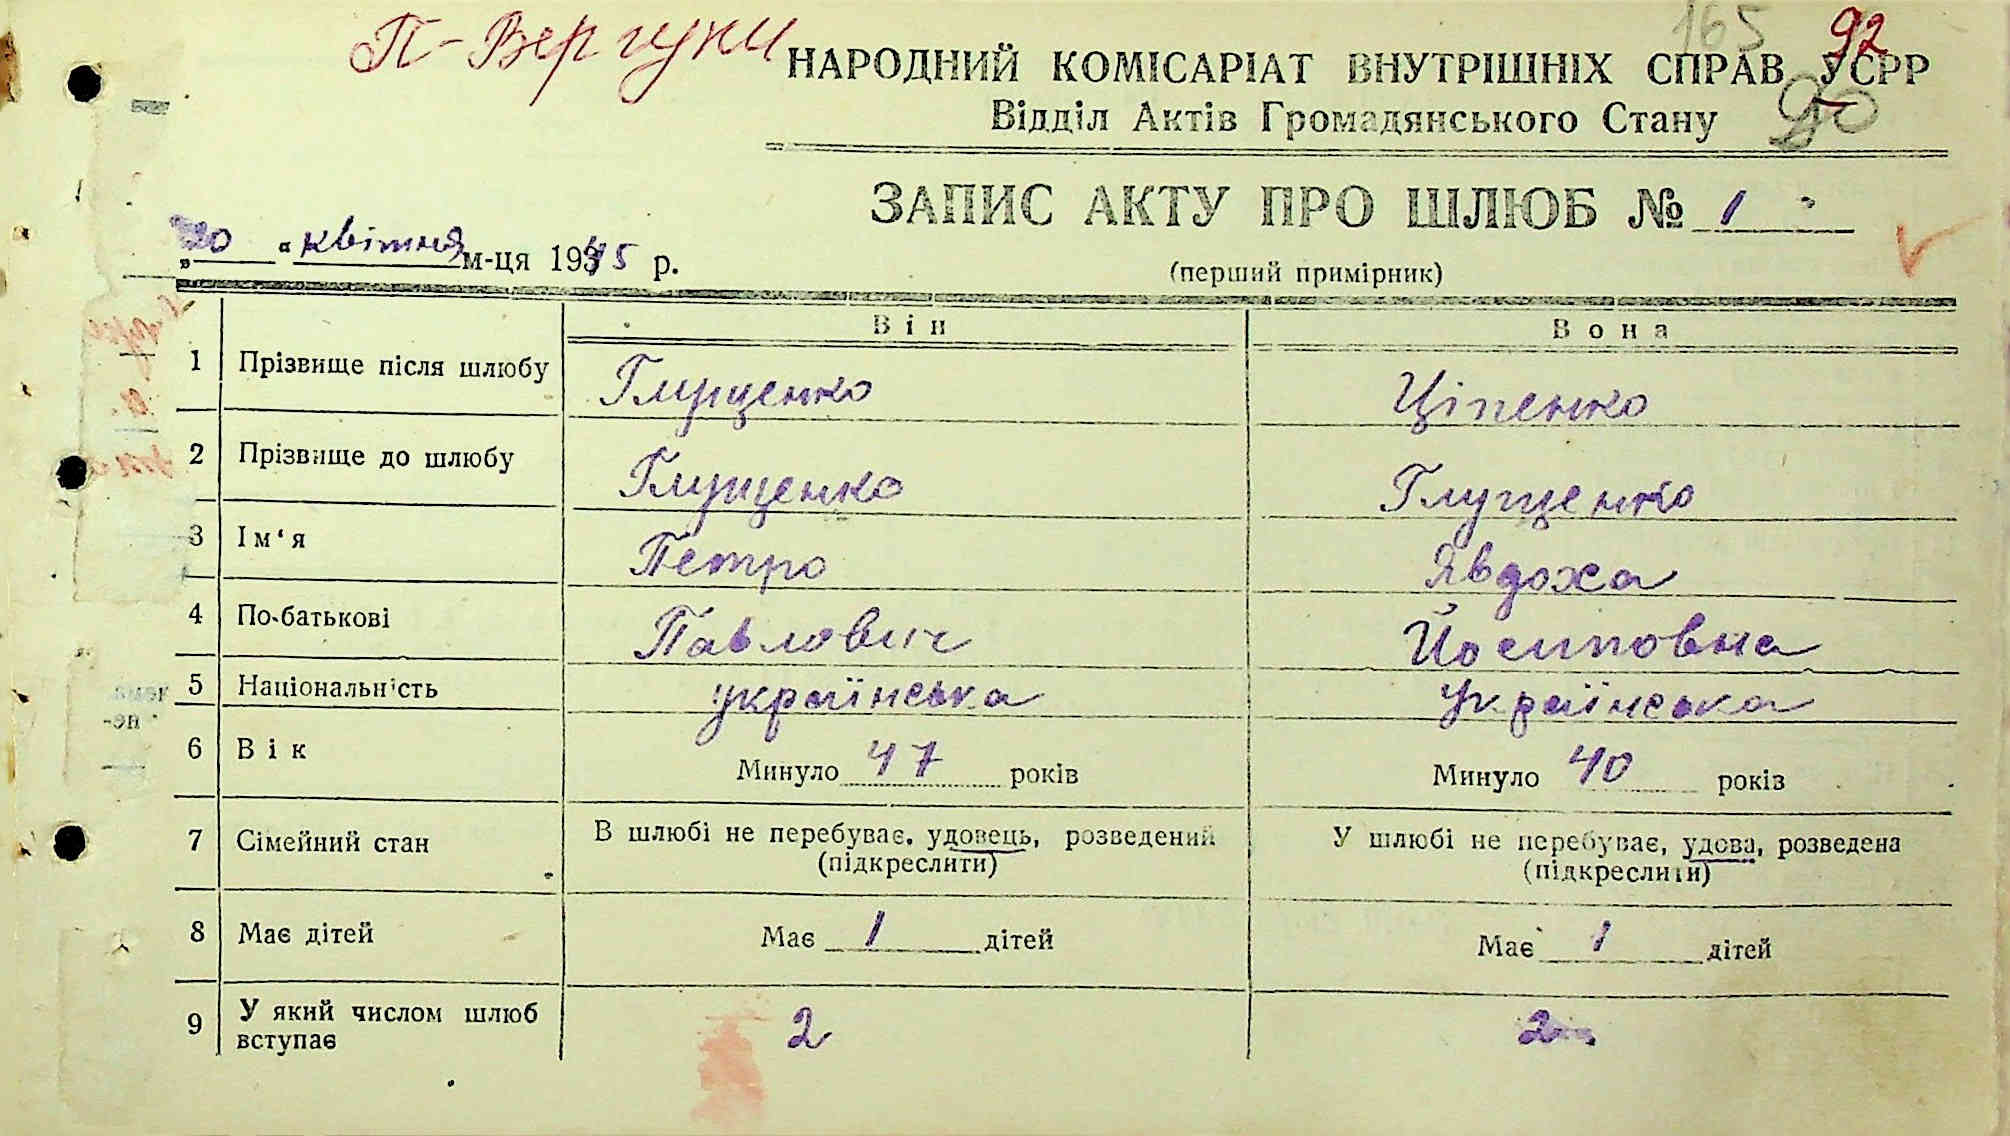 П-Вергуни
165 92
НАРОДНИЙ КОМІСАРІАТ ВНУТРІШНІХ СПРАВ УСРР
Відділ Актів Громадянського Стану
ЗАПИС АКТУ ПРО ШЛЮБ № 1
„20“ квітня м-ця 1945 р.
(перший примірник)
Він Вона
1 Прізвище після шлюбу Глущенко Ціпенко
2 Прізвище до шлюбу Глущенко Глущенко
3 Ім‘я Петро Явдоха
4 По-батькові Павлович Йосиповна
5 Національність українська українська
6 Вік Минуло 47 років Минуло 40 років
7 Сімейний стан В шлюбі не перебуває, удовець, розведений У шлюбі не перебуває, удова, розведена
(підкреслити) (підкреслити)
8 Має дітей Має 1 дітей Має 1 дітей
9 У який числом шлюб
вступає 2 2